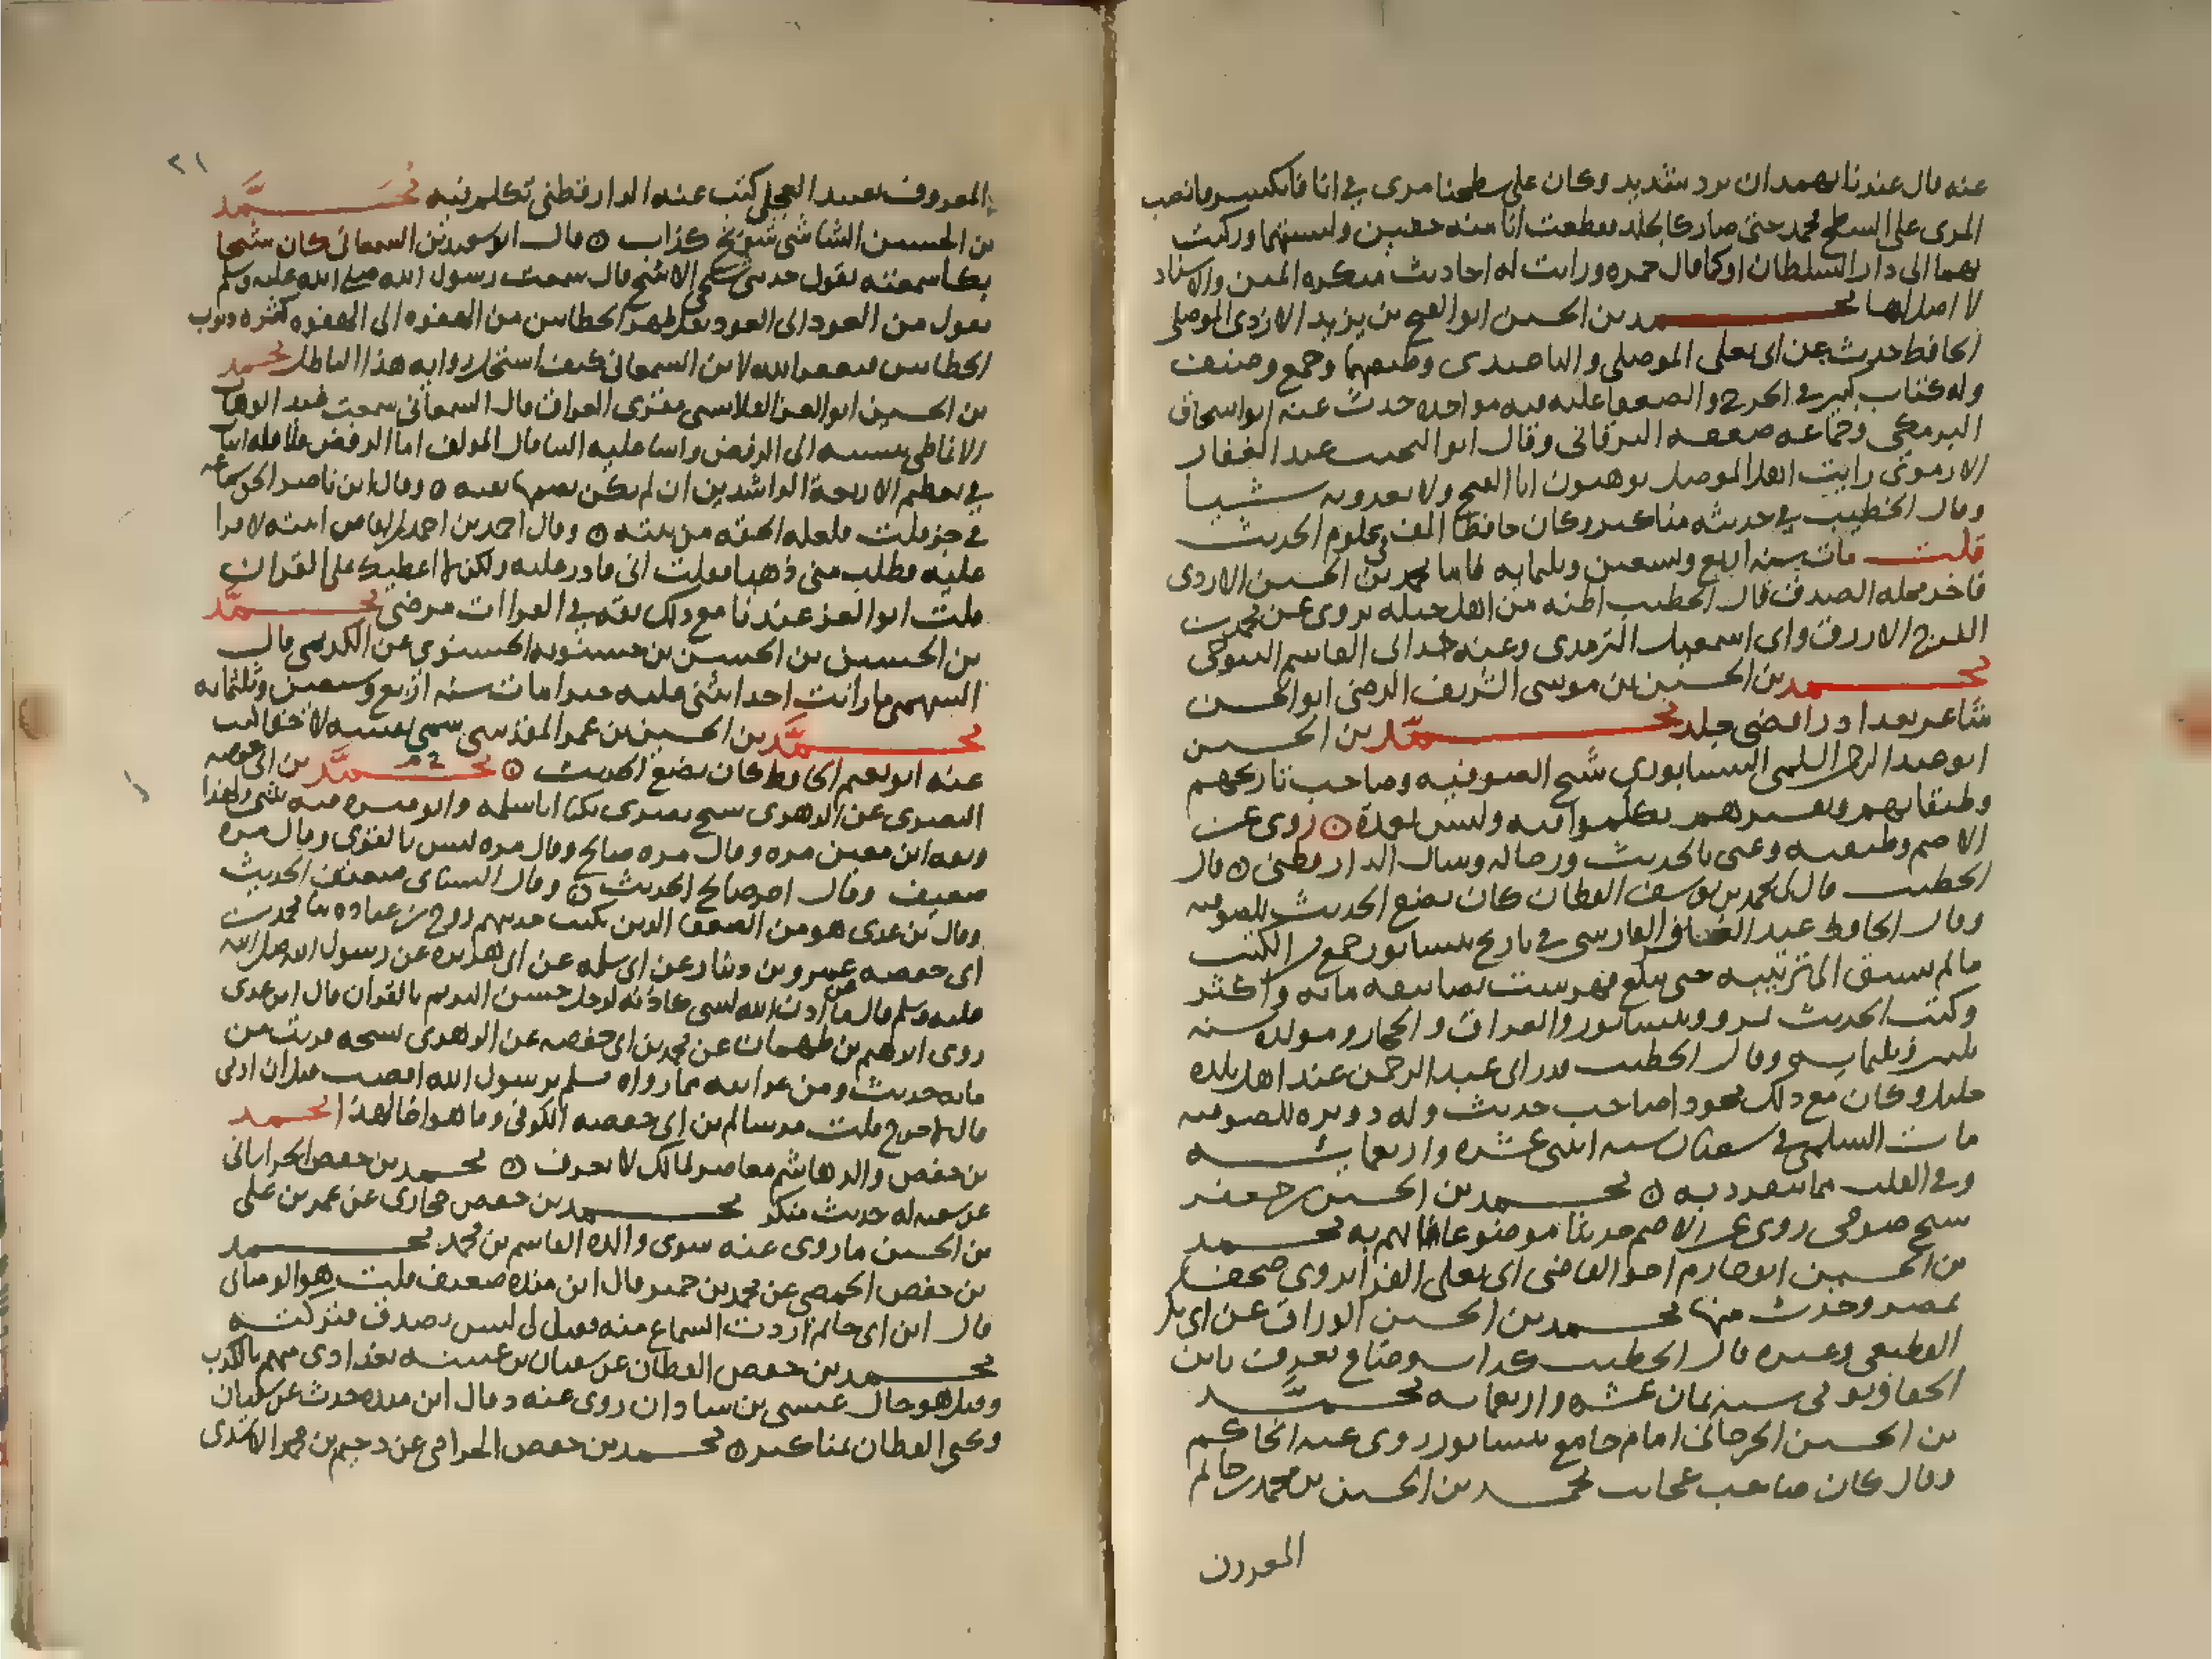 عنه قال عندنا بهمدان برد شديد وكان على سطحنا مرى في انا فانكسر وانصب
المرى على السطح فجمد حتى صار كالجلد فقطعت انا منه خفين ولبستهما وركبت
بهما الى دار السلطان او كما قال حمزه ورايت له احاديث منكره المتن والاسناد
لا اصل لها محمد بن الحسين ابو الفتح بن يزيد الازدي الموصلي
الحافظ حدث عن ابي يعلى الموصلي والباغندي وطبقتهما وجمع وصنف
وله كتاب كبير في الجرح والضعفا عليه فيه مواخذه حدث عنه ابو اسحاق
البرمكي وجماعه ضعفه البرقاني وقال ابو النجيب عبد الغفار
الارموي رايت اهل الموصل يوهنون ابا الفتح ولا يعدونه شيا
وقال الخطيب في حديثه مناكير وكان حافظا الف في علوم الحديث
قلت مات سنه اربع وسبعين وثلثمايه فاما محمد بن الحسين الازدي
فاخر محله الصدق قال الخطيب اظنه من اهل جبله يروي عن محمد بن
الفرج الازرق وابي اسمعيل الترمذي وعنه ابي القاسم التنوخي
محمد بن الحسين بن موسى الشريف الرضي ابو الحسن
شاعر بغداد رافضي جلد محمد بن الحسين
ابو عبد الرحمن السلمي النيسابوري شيخ الصوفيه وصاحب تاريخهم
وطبقاتهم وتفسيرهم تكلموا فيه وليس بعمدة روى عن
الاصم وطبقته وعني بالحديث ورجاله وسال الدارقطني قال
الخطيب قال لي محمد بن يوسف القطان كان يضع الحديث للصوفيه
وقال الحافظ عبد الغافر الفارسي في تاريخ نيسابور جمع من الكتب
ما لم يسبق الى ترتيبه حتى بلغ فهرست تصانيفه مائه واكثر
وكتب الحديث بمرو ونيسابور والعراق والحجاز ومولده سنه
ثلثين وثلثمايه وقال الخطيب قدر ابي عبد الرحمن عند اهل بلده
جليل وكان مع ذلك مجودا صاحب حديث وله دويره للصوفيه
مات السلمي في شعبان سنه اثنتي عشره واربعمائه
وفي القلب مما يتفرد به محمد بن الحسين بن جعفر
شيخ صوفي روى عن الاصم حديثا موضوعا اتهم به محمد
بن الحسين ابو حازم اخو القاضي ابي يعلى الفرا يروي صحف
بمصر وحدث منها محمد بن الحسين الوراق عن ابي بكر
القطيعي وغيره قال الخطيب كذاب وضاع يعرف بابن
الخفاف توفي سنه ثمان عشره واربعمايه محمد
بن الحسين الجرجاني امام جامع نيسابور روى عنه الحاكم
وقال كان صاحب عجائب محمد بن الحسين بن محمد بن حاتم
المعروف
٢١
المعروف بعبيد العجل كتب عنه الدارقطني تكلم فيه محمد
بن الحسين الشاشي شيخ كذاب قال ابو سعد بن السمعاني كان شيخا
بكا سمعته يقول حدثني الاشج قال سمعت رسول الله صلى الله عليه وسلم
يقول من العود الى العود ثقل ظهر الخطاين من الهفوه الى الهفوه كثره ذنوب
الخطاين فيغفر الله لابن السمعاني كيف استحل روايه هذا الباطل محمد
بن الحسين ابو العز القلانسي مقرئ العراق قال السمعاني سمعت عبد الوهاب
الانماطي ينسبه الى الرفض واسا عليه الثنا قال المولف اما الرفض فلا فله ابيات
في تعظيم الاربعة الراشدين ان لم يكن تقيها بقيه وقال ابن ناصر الحق سماعه
في جزء قلت فلعله الحقه من ثبته وقال احمد بن احمد بن القاص اتيته لاقرا
عليه فطلب مني ذهبا فقلت اني قادر عليه ولكن لا اعطيك على القران
قلت ابو العز عندنا مع ذلك ثقه في القراات مرضي محمد
بن الحسين بن الحسين بن حسنويه الحسنوي عن الكديمي قال
السهمي ما رايت احدا يثني عليه خيرا مات سنه اربع وسبعين وثلثمايه
محمد بن الحسين بن عمر المقدسي سمى نفسه لاحقا كتب
عنه ابو نعيم الحافظ كان يضع الحديث محمد بن ابي حفصه
البصري عن الزهري شيخ بصري يكنا ابا سلمه وابو ميسره فيه شي ولهذا
وثقه ابن معين مره وقال مره صالح وقال مره ليس بالقوي وقال مره
ضعيف وقال اخر صالح الحديث وقال النساي ضعيف الحديث
وقال بن عدي هو من الضعفا الذين يكتب حديثهم روح بن عباده ثنا محمد بن
ابي حفصه عن عمرو بن دينار عن ابي سلمه عن ابي هريره عن رسول الله صلى الله
عليه وسلم قال ما اذن الله لشي كاذنه لرجل حسن الترنم بالقران قال ابن عدي
روى ابراهيم بن طهمان عن محمد بن ابي حفصه عن الزهري نسخه قريبه من
مايه حديث ومن غرائبه مما رواه مسلم يرسول الله افضت قبل ان ارمي
قال لا حرج قلت فو سالم بن ابي حفصه الكوفي وما هو اخا لهذا محمد
بن حفص والد هاشم معاصر لمالك لا يعرف محمد بن حفص الخراساني
عن شعبه له حديث منكر محمد بن حفص حجازي عن عمر بن علي
بن الحسين ما روى عنه سوى والده القاسم بن محمد محمد
بن حفص الحمصي عن محمد بن حمير قال ابن منده ضعيف قلت هو الوصابي
قال ابن ابي حاتم اردت السماع منه فقيل لي ليس يصدق فتركته
محمد بن حفص القطان عن سفيان بن عيينه بغدادي متهم بالكذب
وقيل هو خال عيسى بن شاذان روى عنه د قال ابن منده حدث عن سفيان
ويحيى القطان بمناكير محمد بن حفص الحزامي عن دحيم بن محمد الاسدي